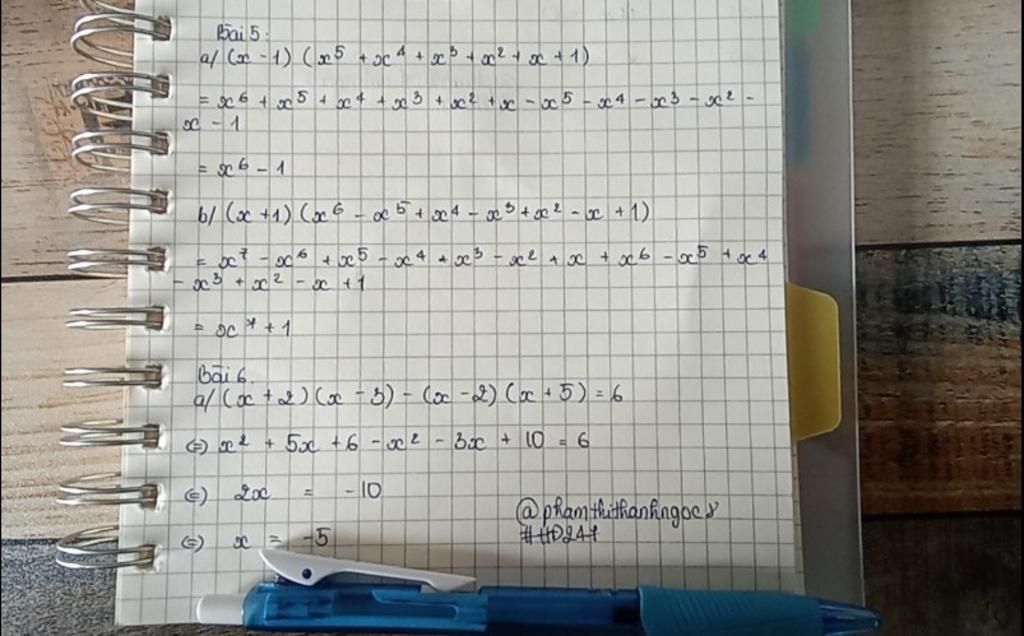 Bài 5:
a/ (x - 1) (x⁵ + x⁴ + x³ + x² + x + 1)
= x⁶ + x⁵ + x⁴ + x³ + x² + x - x⁵ - x⁴ - x³ - x² -
x - 1
= x⁶ - 1
b/ (x + 1) (x⁶ - x⁵ + x⁴ - x³ + x² - x + 1)
= x⁷ - x⁶ + x⁵ - x⁴ + x³ - x² + x + x⁶ - x⁵ + x⁴
- x³ + x² - x + 1
= x⁷ + 1
Bài 6.
a/ (x + 2) (x - 3) - (x - 2) (x + 5) = 6
(=) x² + 5x + 6 - x² - 3x + 10 = 6
(=) 2x = -10
(=) x = -5
@phamthithanhngoc8
#HD247